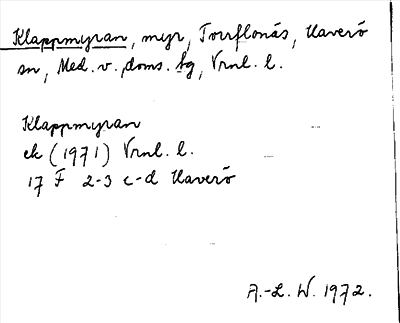 Klappmyran, myr, Torrflonäs, Haverö
sn, Med. v. doms. tg, Vrnl. l.
Klappmyran
ek (1971) Vrnl. l.
17 F 2-3 c-d Haverö
A.-L. W. 1972.